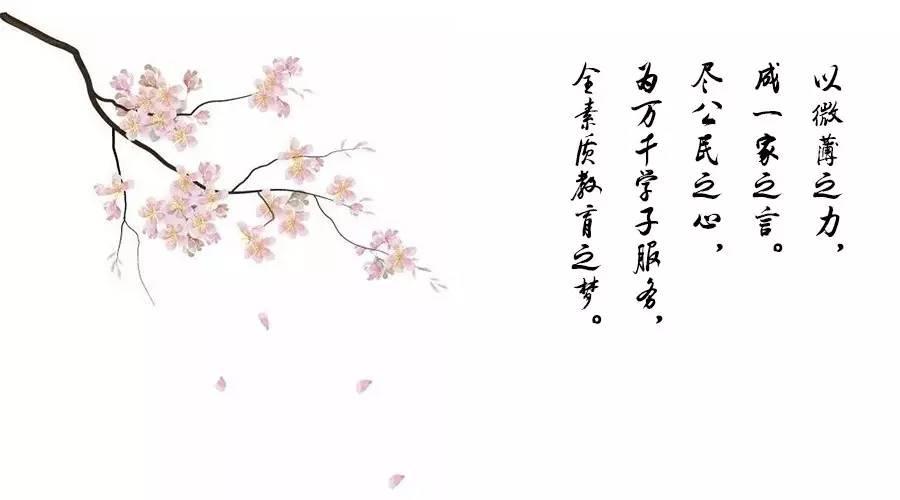 以微薄之力，
成一家之言。
尽公民之心，
为万千学子服务，
全素质教育之梦。